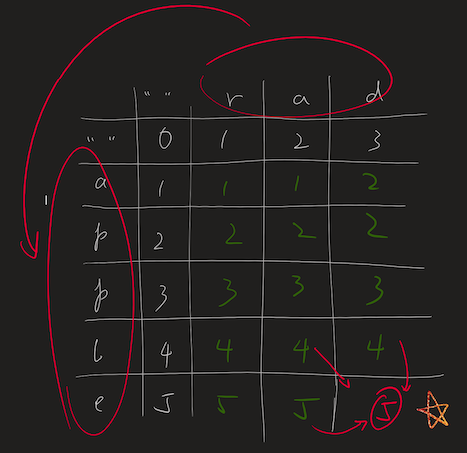 "" r a d
"" 0 1 2 3
a 1 1 1 2
p 2 2 2 2
p 3 3 3 3
l 4 4 4 4
e 5 5 5 5